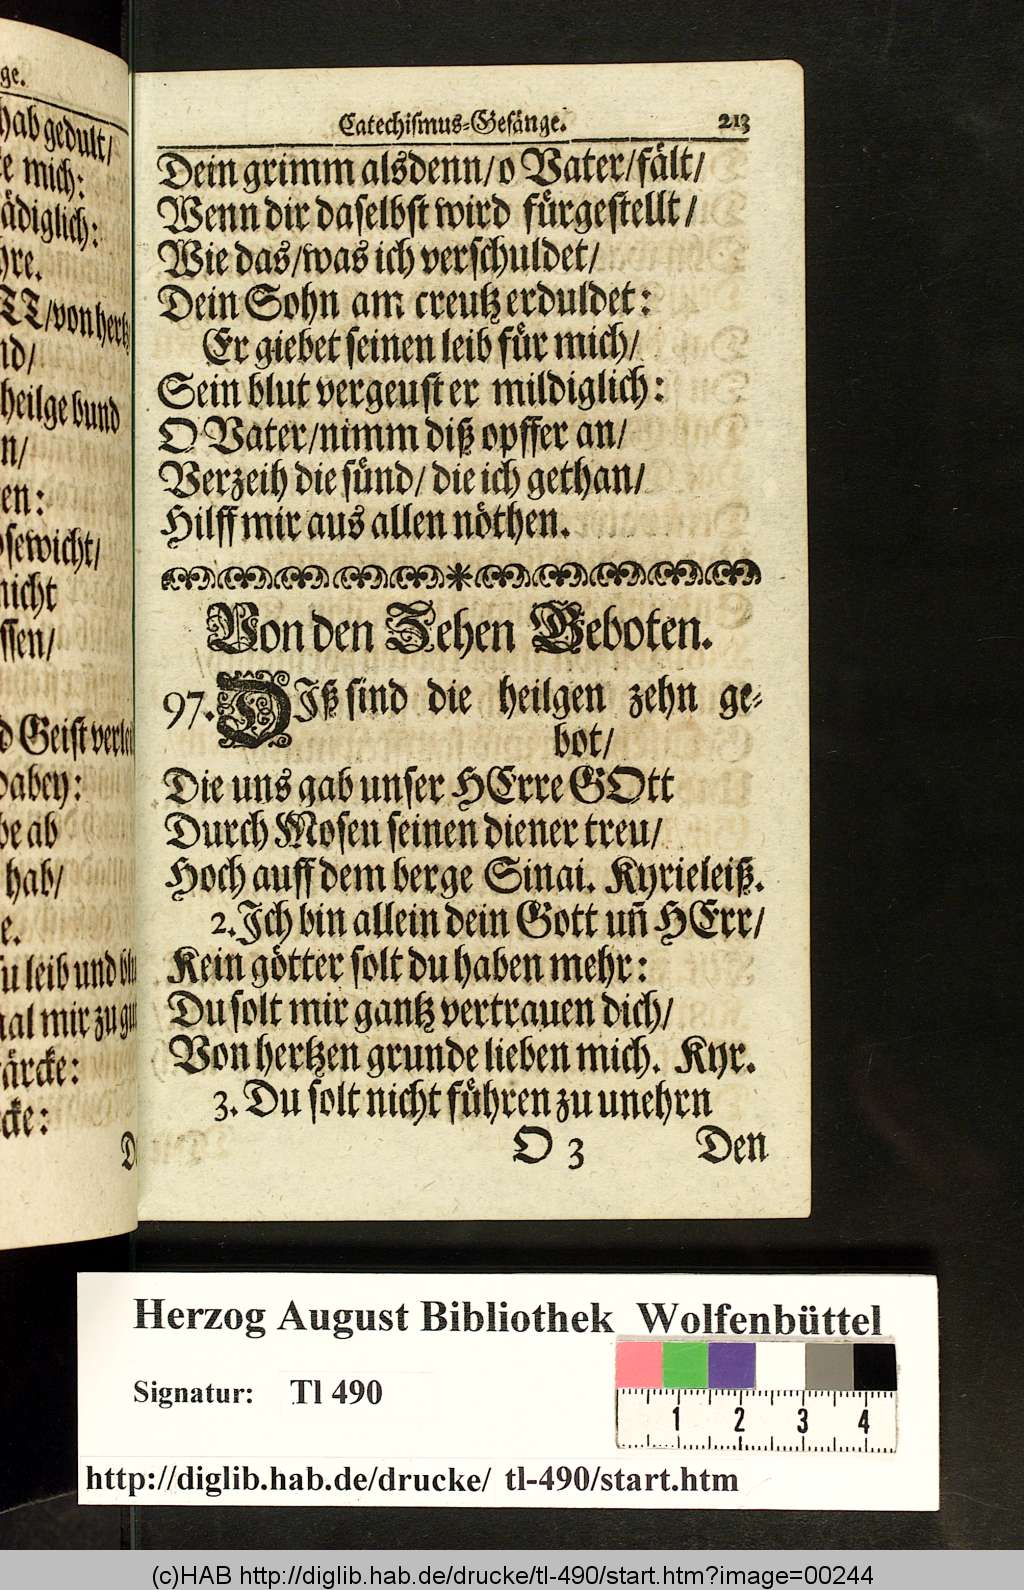 ge.
hab gedult/
mich:
ädiglich:
von hertz
heilge bund
sewicht/
nicht
ssen/
Geist verlei
dabey:
be ab
hab/
leib und blu
mal mir zu gu
ärcke:
cke:
D
Catechismus-Gesänge. 213
Dein grimm alsdenn/o Vater/fält/
Wenn dir daselbst wird fürgestellt/
Wie das/was ich verschuldet/
Dein Sohn am creutz erduldet:
Er giebet seinen leib für mich/
Sein blut vergeust er mildiglich:
O Vater/nimm diß opffer an/
Verzeih die sünd/ die ich gethan/
Hilff mir aus allen nöthen.
Von den Zehen Geboten.
97. DIß sind die heilgen zehn ge-
bot/
Die uns gab unser HErre GOtt
Durch Mosen seinen diener treu/
Hoch auff dem berge Sinai. Kyrieleiß.
2. Ich bin allein dein Gott uñ HErr/
Kein götter solt du haben mehr:
Du solt mir gantz vertrauen dich/
Von hertzen grunde lieben mich. Kyr.
3. Du solt nicht führen zu unehrn
O 3 Den
Herzog August Bibliothek Wolfenbüttel
Signatur: Tl 490
1 2 3 4
http://diglib.hab.de/drucke/ tl-490/start.htm
(c)HAB http://diglib.hab.de/drucke/tl-490/start.htm?image=00244